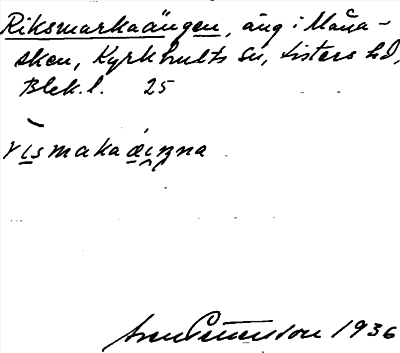 Riksmarkaängen, äng i Måna-
sken, Kyrkhults sn, Listers hd,
Blek.l. 25
rismakaæiŋna
Sven Pettersson 1936